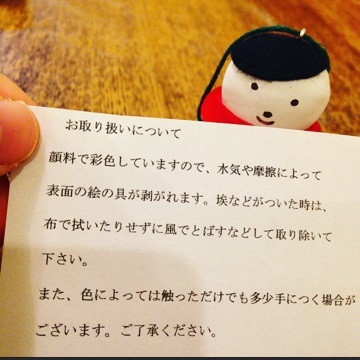 お取り扱いについて
顔料で彩色していますので、水気や摩擦によって
表面の絵の具が剥がれます。埃などがついた時は、
布で拭いたりせずに風でとばすなどして取り除いて
下さい。
また、色によっては触っただけでも多少手につく場合が
ございます。ご了承ください。